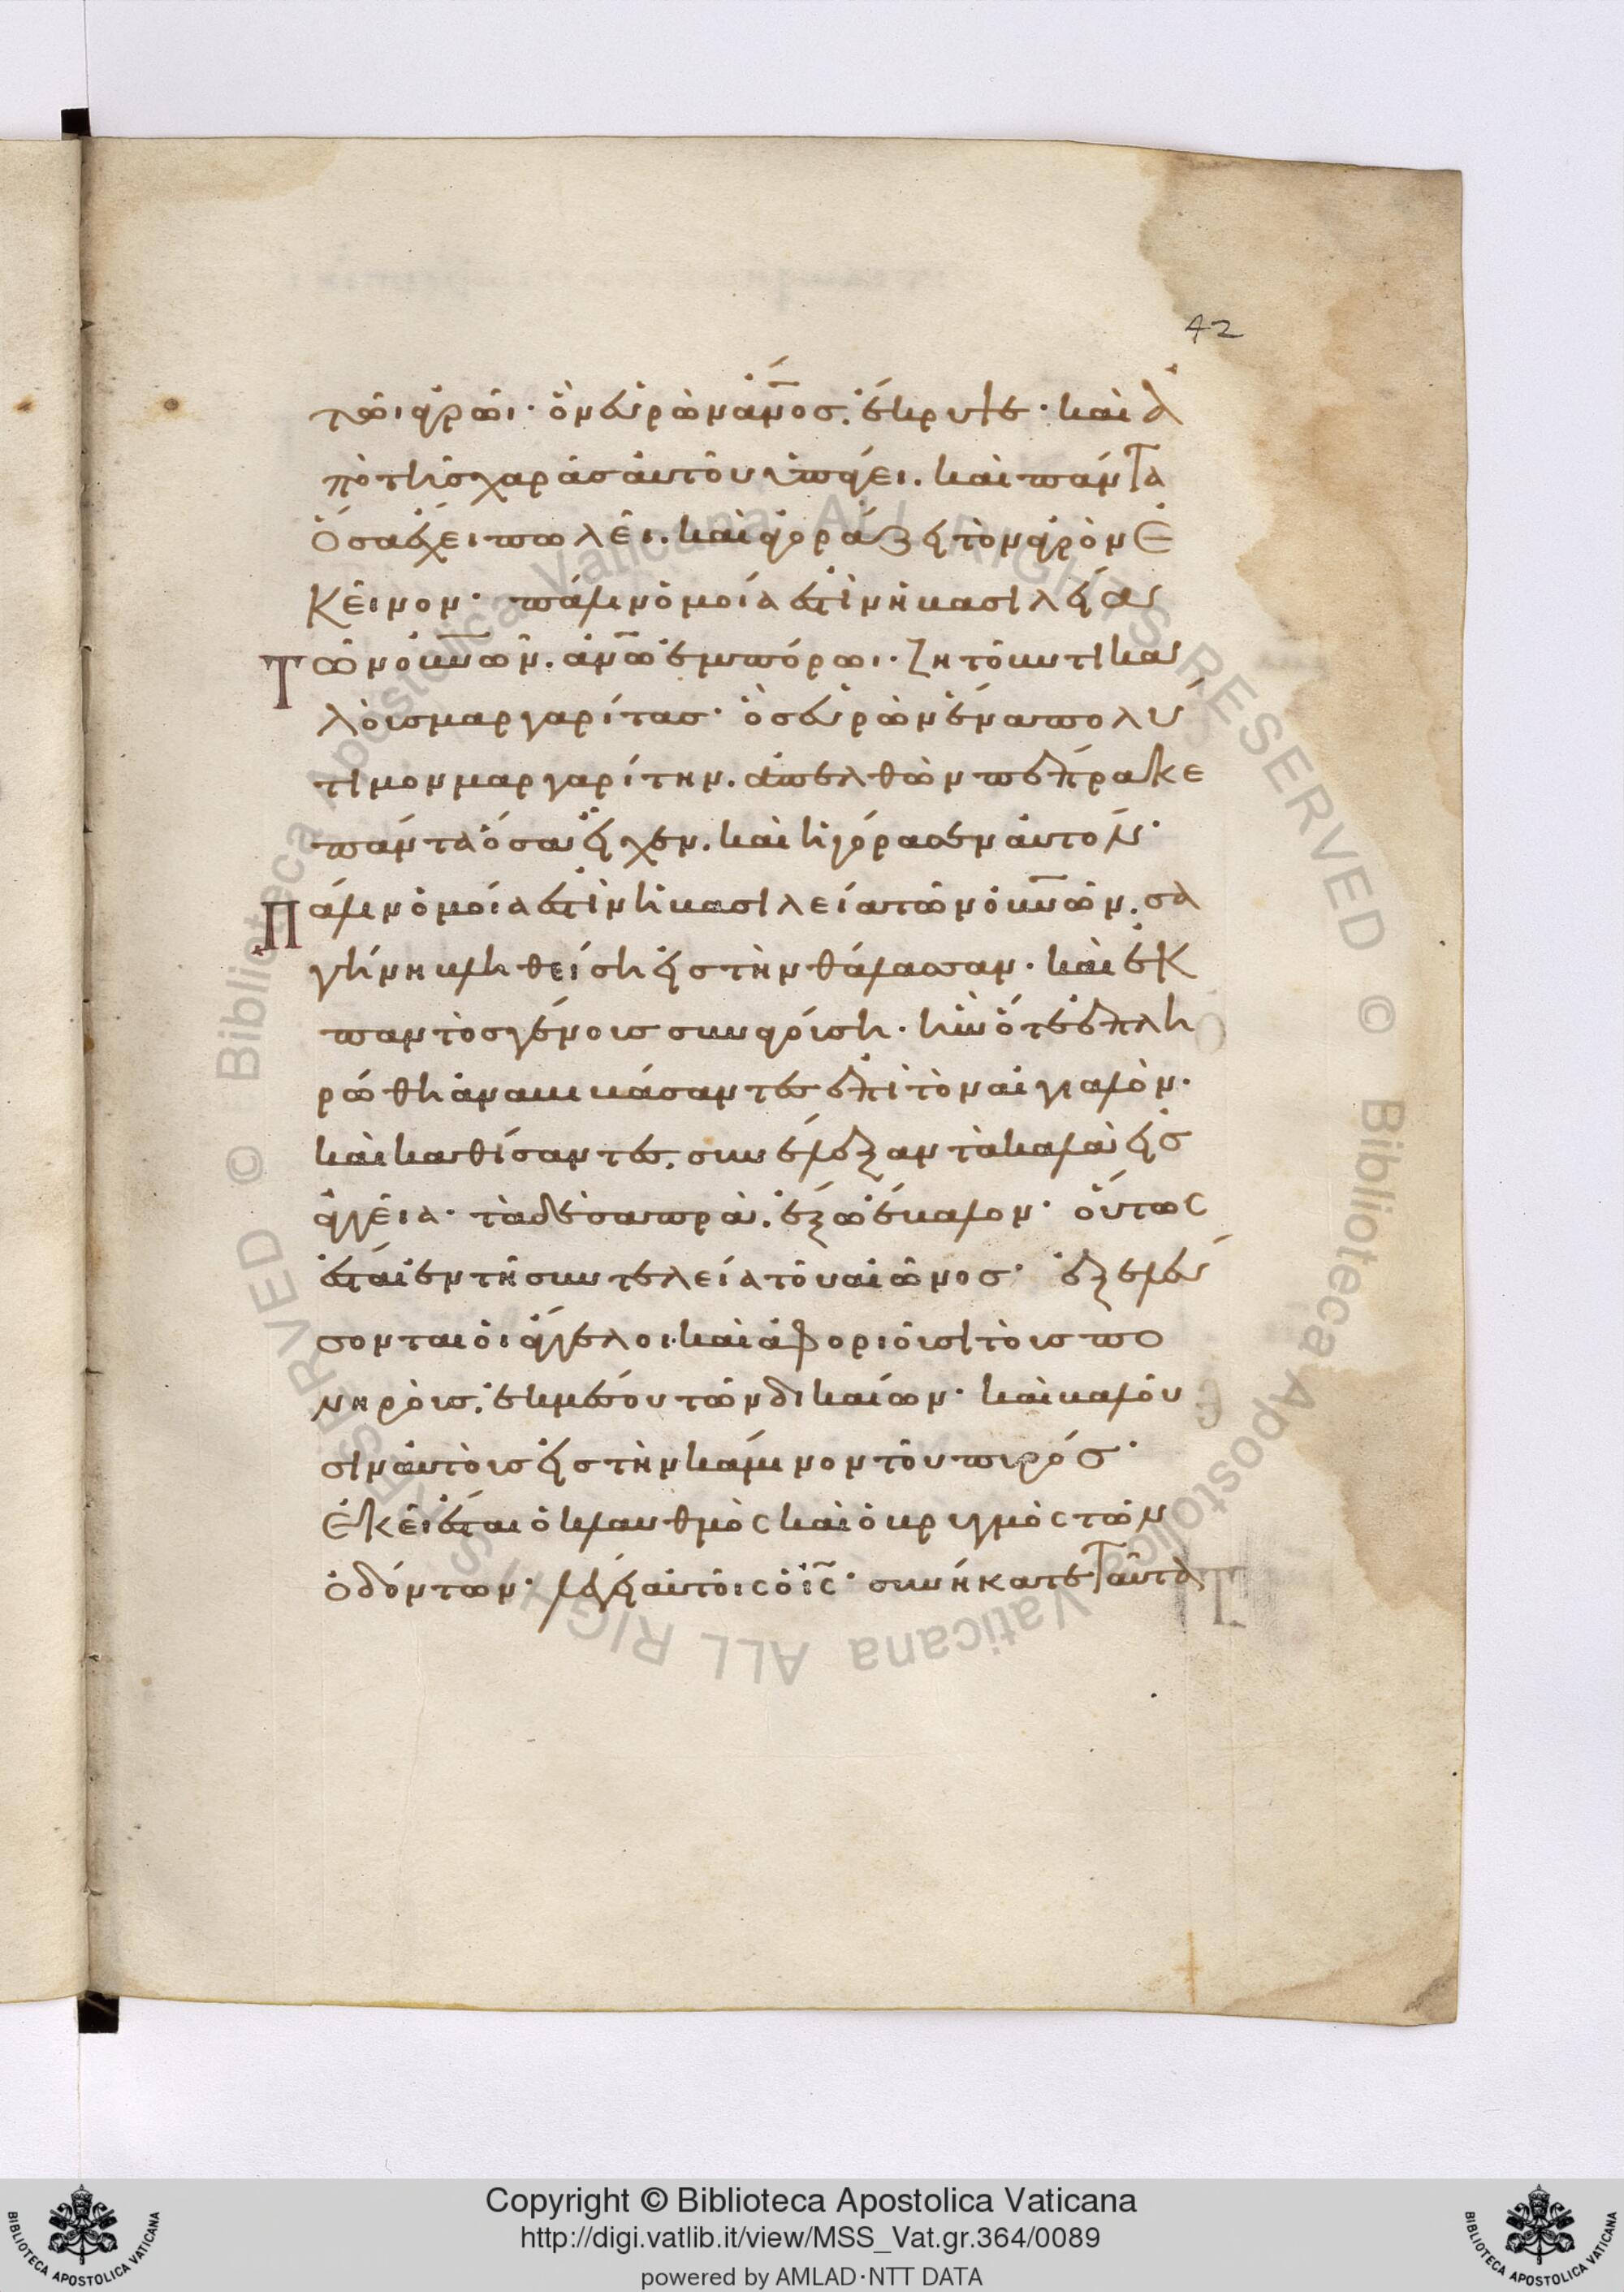 42
τῶι ἀγρῶι· ὃν εὑρὼν ἄνος. ἔκρυψε· καὶ ἀ
πὸ τῆς χαρᾶς αὐτοῦ ὑπάγει. καὶ πάντα
ὅσα ἔχει πωλεῖ. καὶ ἀγοράζει τὸν ἀγρὸν ἐ
κεῖνον· πάλιν ὁμοία ἐστὶν ἡ βασιλεία
τῶν οὐνῶν. ἀνω ἐμπόρωι· ζητοῦντι κα
λοὺς μαργαρίτας· ὃς εὑρὼν ἕνα πολύ
τιμον μαργαρίτην. ἀπελθὼν πέπρακε
πάντα ὅσα εἶχεν. καὶ ἠγόρασεν αὐτόν·
Πάλιν ὁμοία ἐστὶν ἡ βασιλεία τῶν οὐνῶν. σα
γήνη βληθείση εἰς τὴν θάλασσαν· καὶ ἐκ
παντὸς γένους συναγούση· ἣν ὅτε ἐπλη
ρώθη ἀναβιβάσαντες ἐπὶ τὸν αἰγιαλὸν·
καὶ καθίσαντες. συνέλεξαν τὰ καλὰ εἰς
ἀγγεῖα· τὰ δὲ σαπρὰ. ἔξω ἔβαλον· οὕτως
ἔσται ἐν τῆ συντελεία τοῦ αἰῶνος· ἐξελεύ
σονται οἱ ἄγγελοι· καὶ ἀφοριοῦσι τοὺς πο
νηροὺς. ἐκ μέσου τῶν δικαίων· καὶ βαλοῦ
σιν αὐτοὺς εἰς τὴν κάμινον τοῦ πυρός·
ἐκεῖ ἔσται ὁ κλαυθμὸς καὶ ὁ βρυγμὸς τῶν
ὀδόντων· λέγει αὐτοῖς ὁ ις· συνήκατε ταῦτα
Copyright © Biblioteca Apostolica Vaticana
http://digi.vatlib.it/view/MSS_Vat.gr.364/0089
powered by AMLAD·NTT DATA
BIBLIOTECA APOSTOLICA VATICANA
BIBLIOTECA APOSTOLICA VATICANA
© Biblioteca Apostolica Vaticana ALL RIGHTS RESERVED © Biblioteca Apostolica Vaticana ALL RIGHTS RESERVED